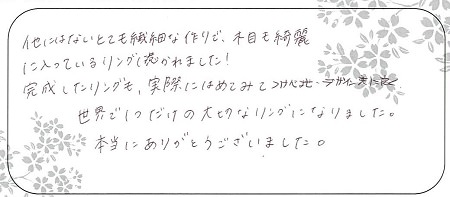 他にはないとても繊細な作りで、木目も綺麗
に入っているリングに惹かれました!
完成したリングも、実際にはめてみて
世界で1つだけの大切なリングになりました。
本当にありがとうございました。